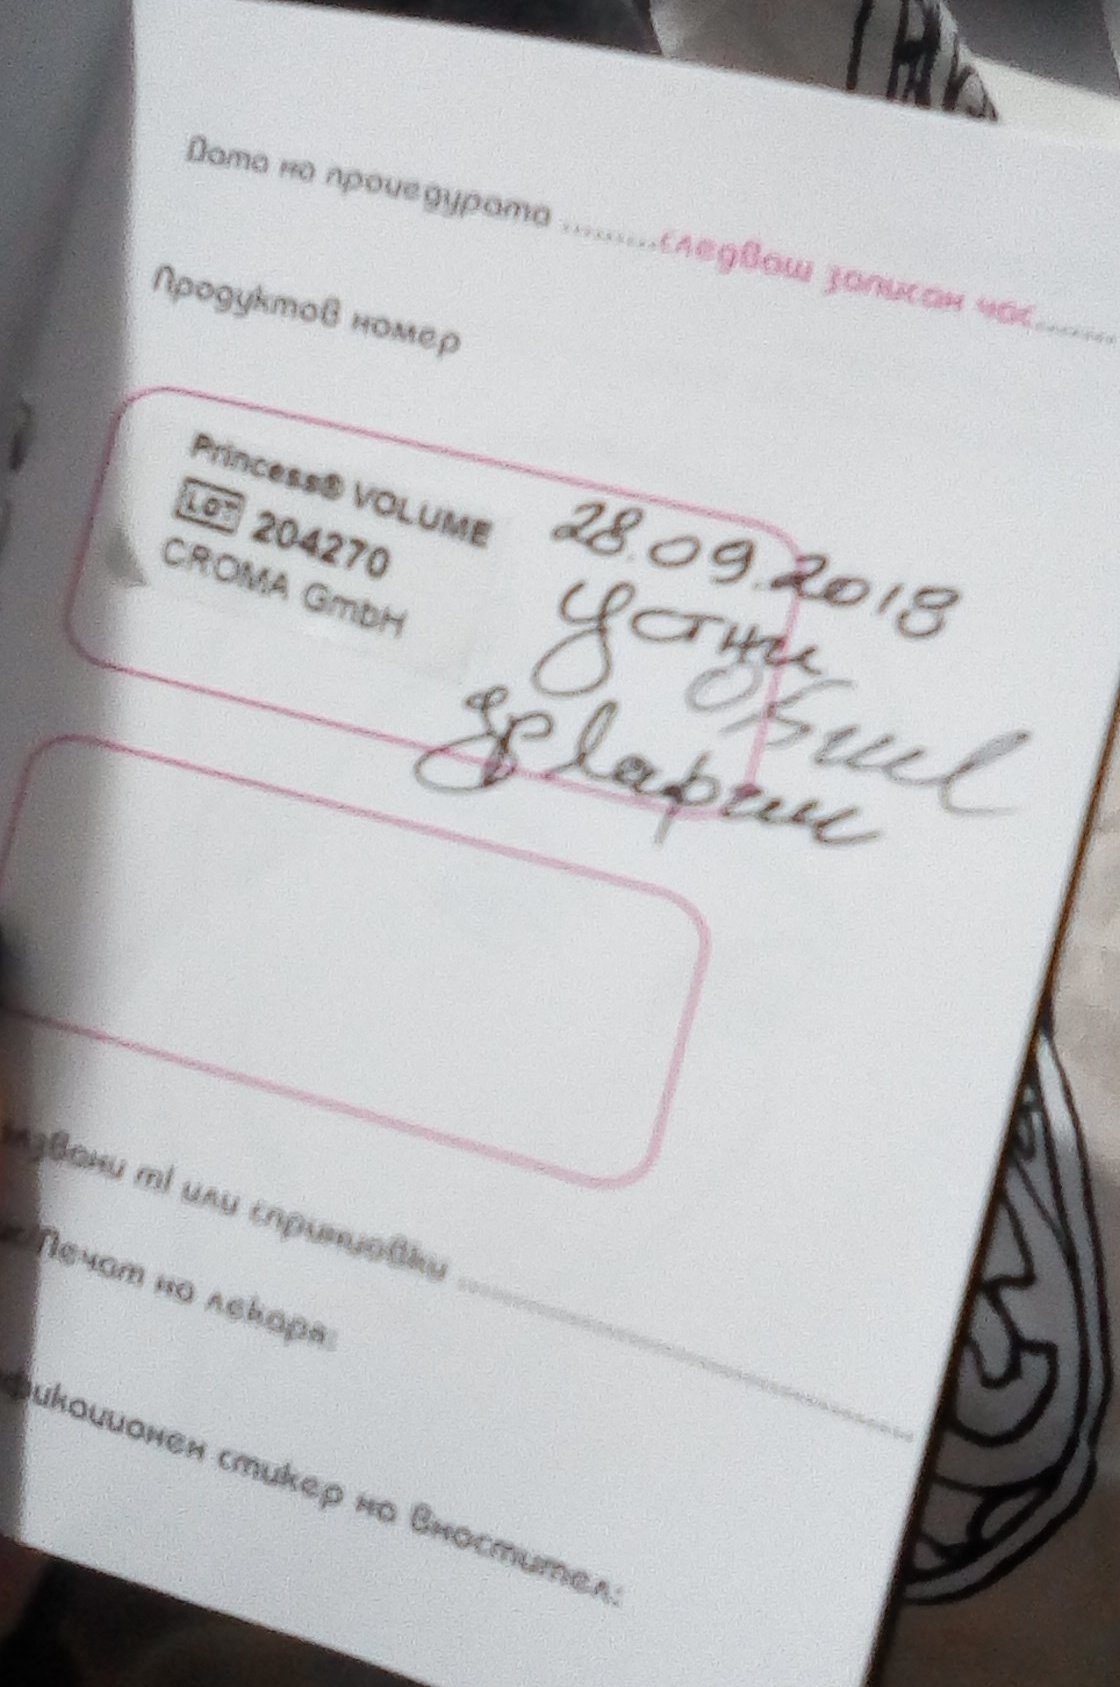 Дата на процедурата ..........следващ записан час........
Продуктов номер
Princess® VOLUME
LOT 204270
CROMA GmbH
28.09.2018
Устни
лзвани ml или спринцовки ........................................
Печат на лекаря:
фикационен стикер на вносител: